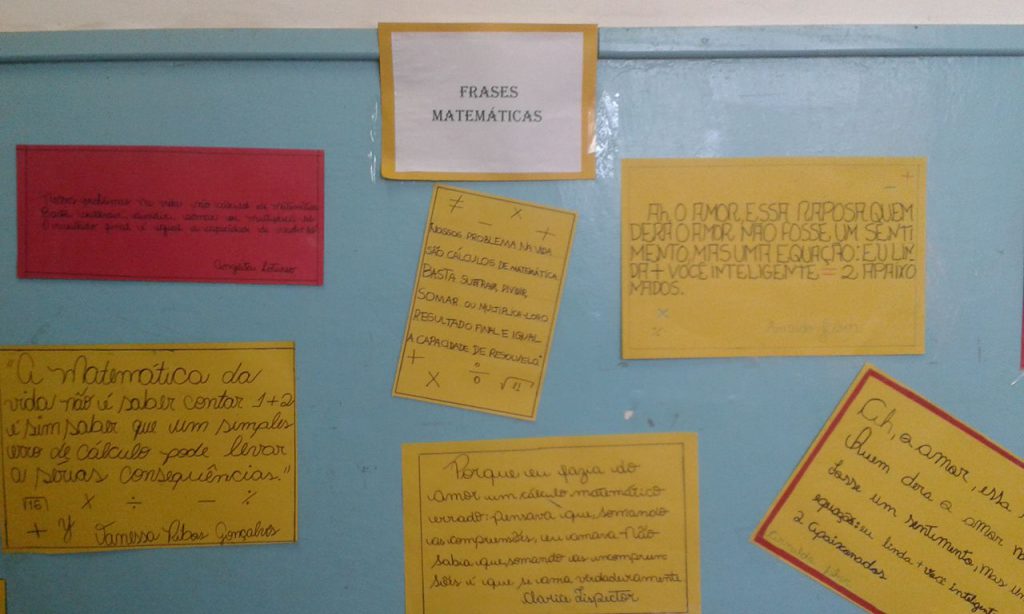 FRASES
MATEMÁTICAS
problemas na vida são cálculos de matemática
Basta subtrair, dividir, somar ou multiplicá-lo
O resultado final é igual a capacidade de
NOSSOS PROBLEMA NA VIDA
SÃO CÁLCULOS DE MATEMÁTICA
BASTA SUBTRAIR, DIVIDIR,
SOMAR OU MULTIPLICA-LO.O
RESULTADO FINAL E IGUAL
A CAPACIDADE DE RESOLVELO."
AH, O AMOR, ESSA RAPOSA. QUEM
DERA O AMOR NÃO FOSSE UM SENTI
MENTO, MAS UMA EQUAÇÃO: EU LIN
DA + VOCÊ INTELIGENTE = 2 APAIXO
NADOS.
"A Matemática da
vida não é saber contar 1+2
é sim saber que um simples
erro de cálculo pode levar
a sérias consequências."
√16 × ÷ − %
+ y Vanessa Ribas Gonçalves
Porque eu fazia do
amor um cálculo matemático
errado: pensava que, somando
as compreensões, eu amava. Não
sabia que, somando as incompreen
sões é que se ama verdadeiramente
Claria Lispector
Ah, o amor, essa
Quem dera o amor
fosse um sentimento, mas
equação: eu linda + você
2 apaixonados